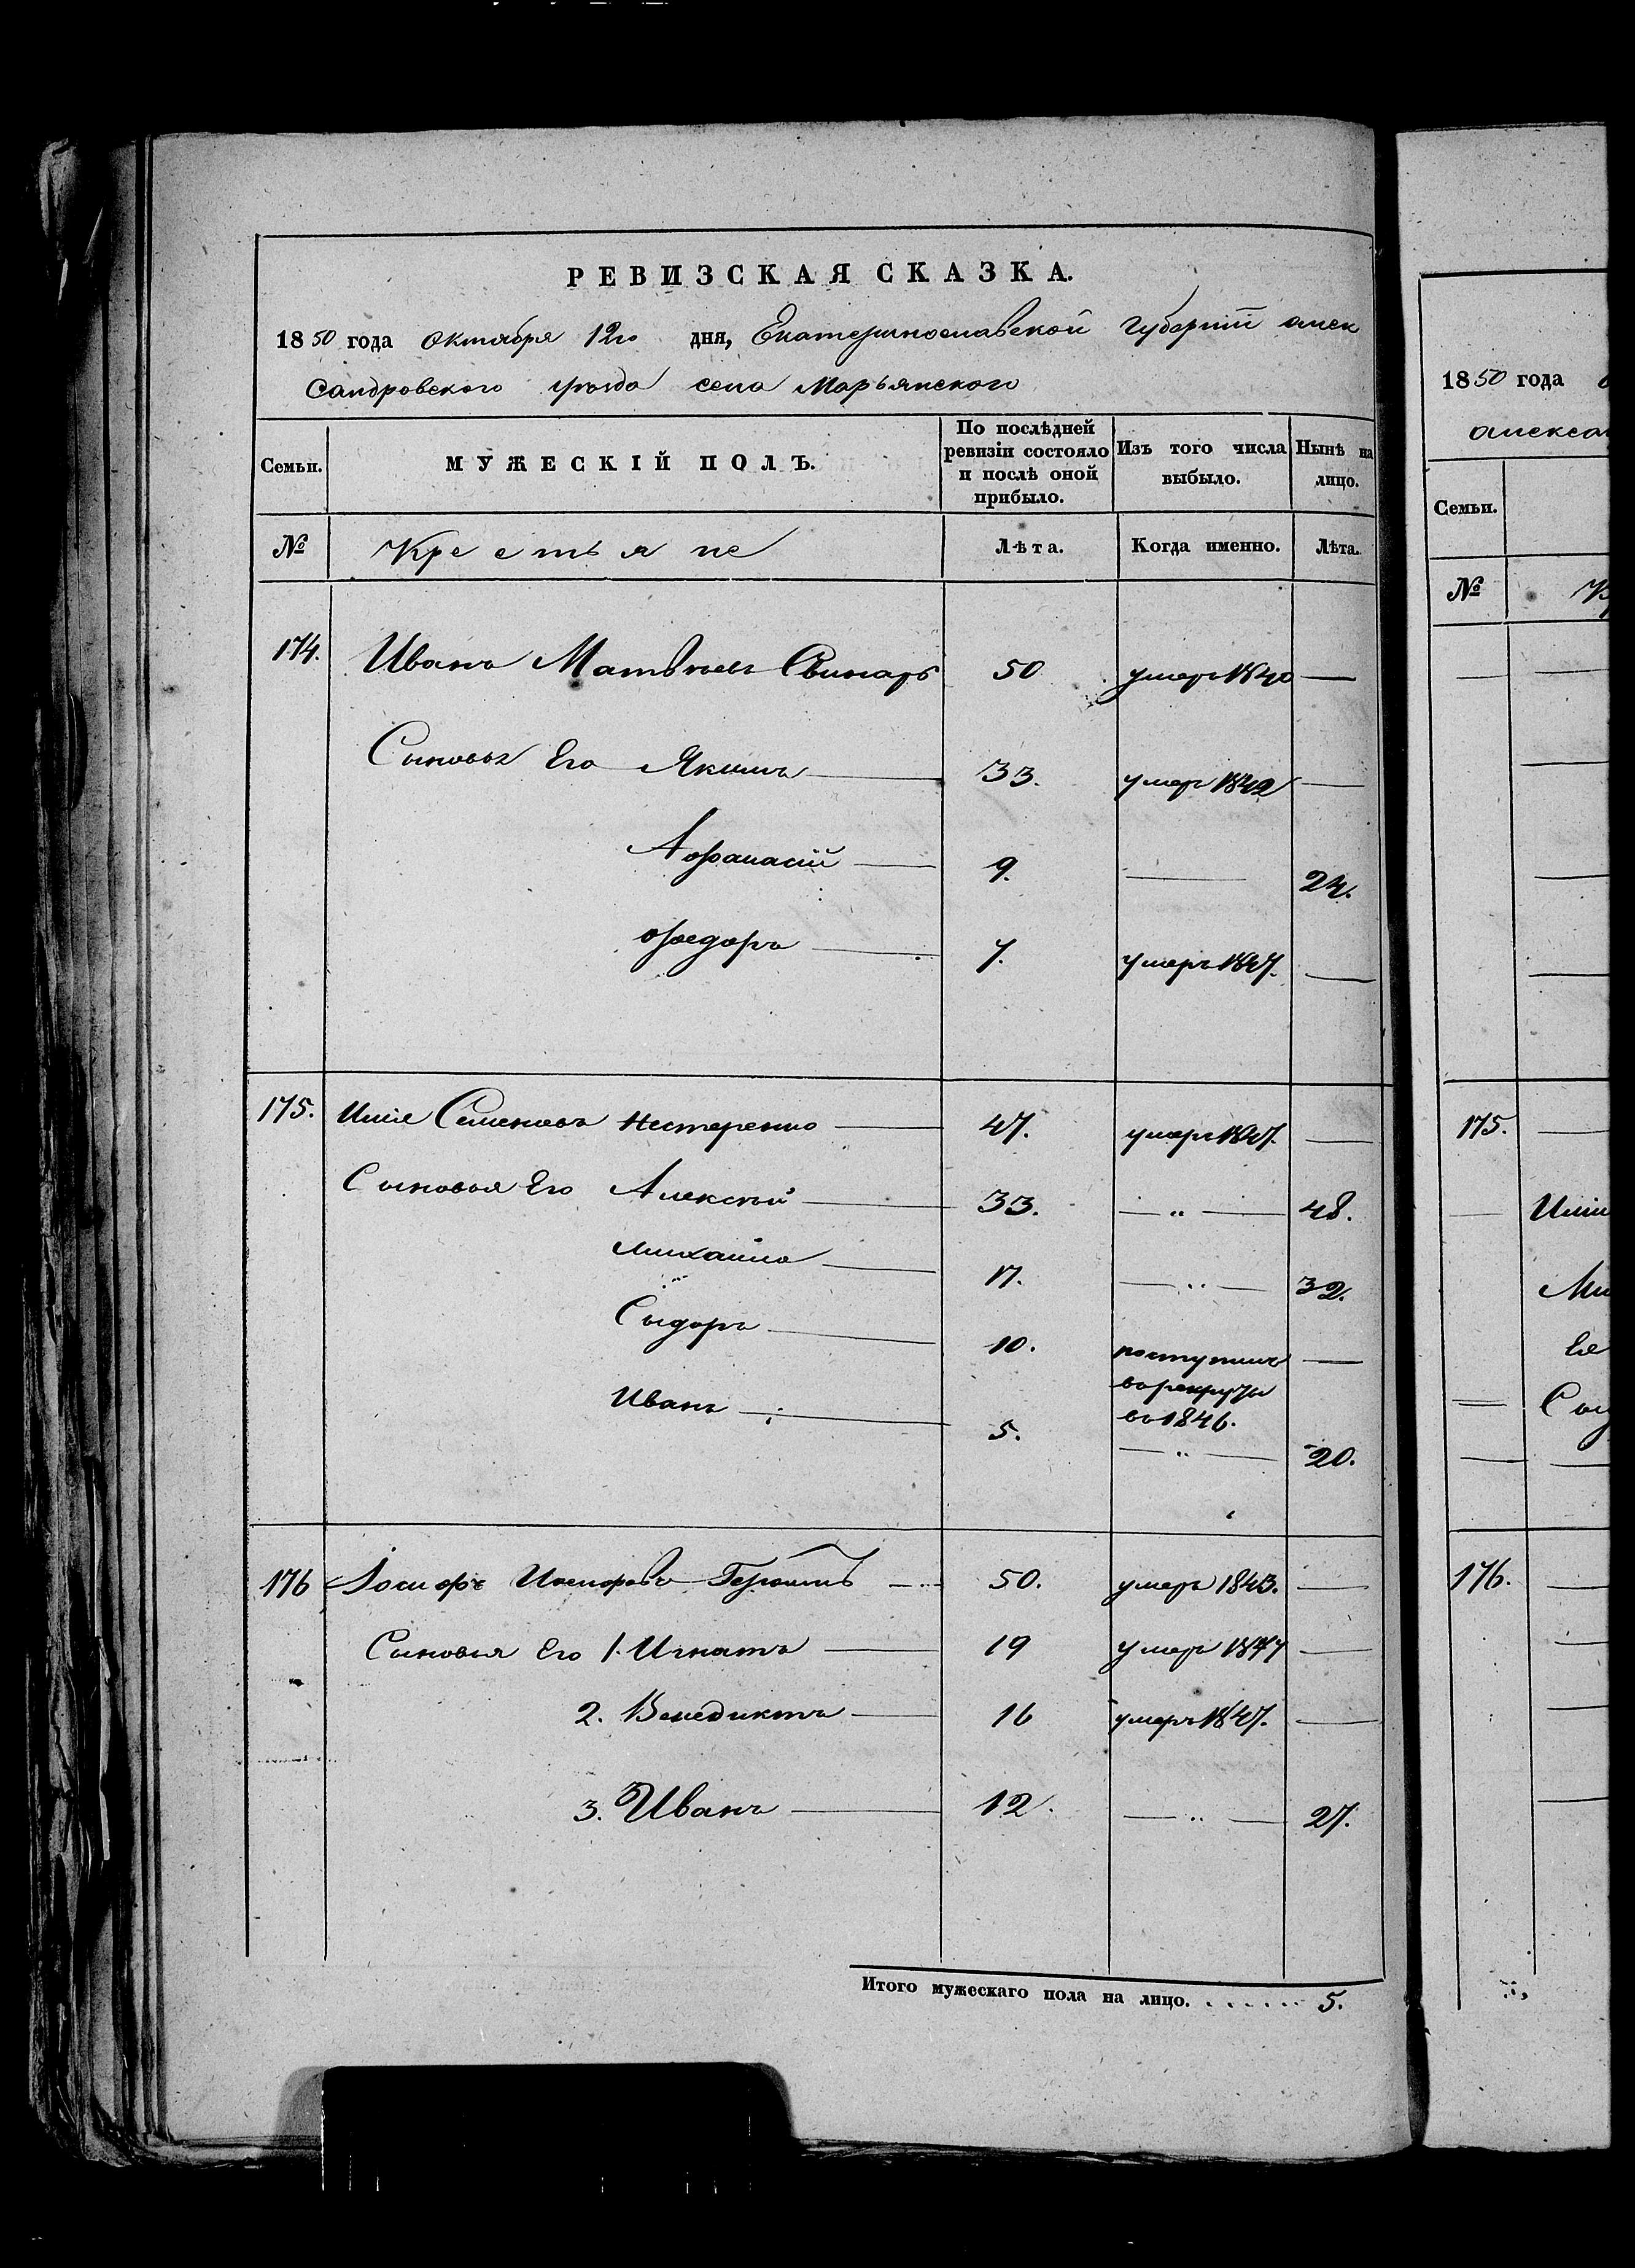 РЕВИЗСКАЯ СКАЗКА.
1850 года Октября 12го дня, Екатеринославской Губернiи алек
сандровского уѣзда села Марьянского
Семьи.
МУЖЕСКІЙ ПОЛЪ.
По послѣдней
ревизіи состояло
и послѣ оной
прибыло.
Изъ того числа
выбыло.
Нынѣ на
лицо.
№ Крестьяне Лѣта. Когда именно. Лѣта.
174. Иванъ Матвѣевъ Свинарь 50 умеръ 1840 —
Сыновья Его Якимъ — 33. умеръ 1842 —
Афанасій — 9. — 24.
Федоръ — 7. умеръ 1847. —
175. Илія Семеновъ Нестеренко — 47. умеръ 1847. —
Сыновья Его Алексѣй — 33. — " — 48.
Михайло — 17. — " — 32.
Сыдоръ — 10. поступилъ —
въ рекруты
въ 1846.
Иванъ — 5. — " — 20.
176 Іосифъ Иосифовъ — 50. умеръ 1843. —
Сыновья Его 1. Игнатъ — 19 умеръ 1847 —
2. Венедиктъ — 16 умеръ 1847. —
3. Иванъ — 12. — " — 27.
Итого мужескаго пола на лицо. . . . . . . 5.
1850 года
алекса
Семьи.
№
175. —
Илі
Ми
Ея
Сы
176. —